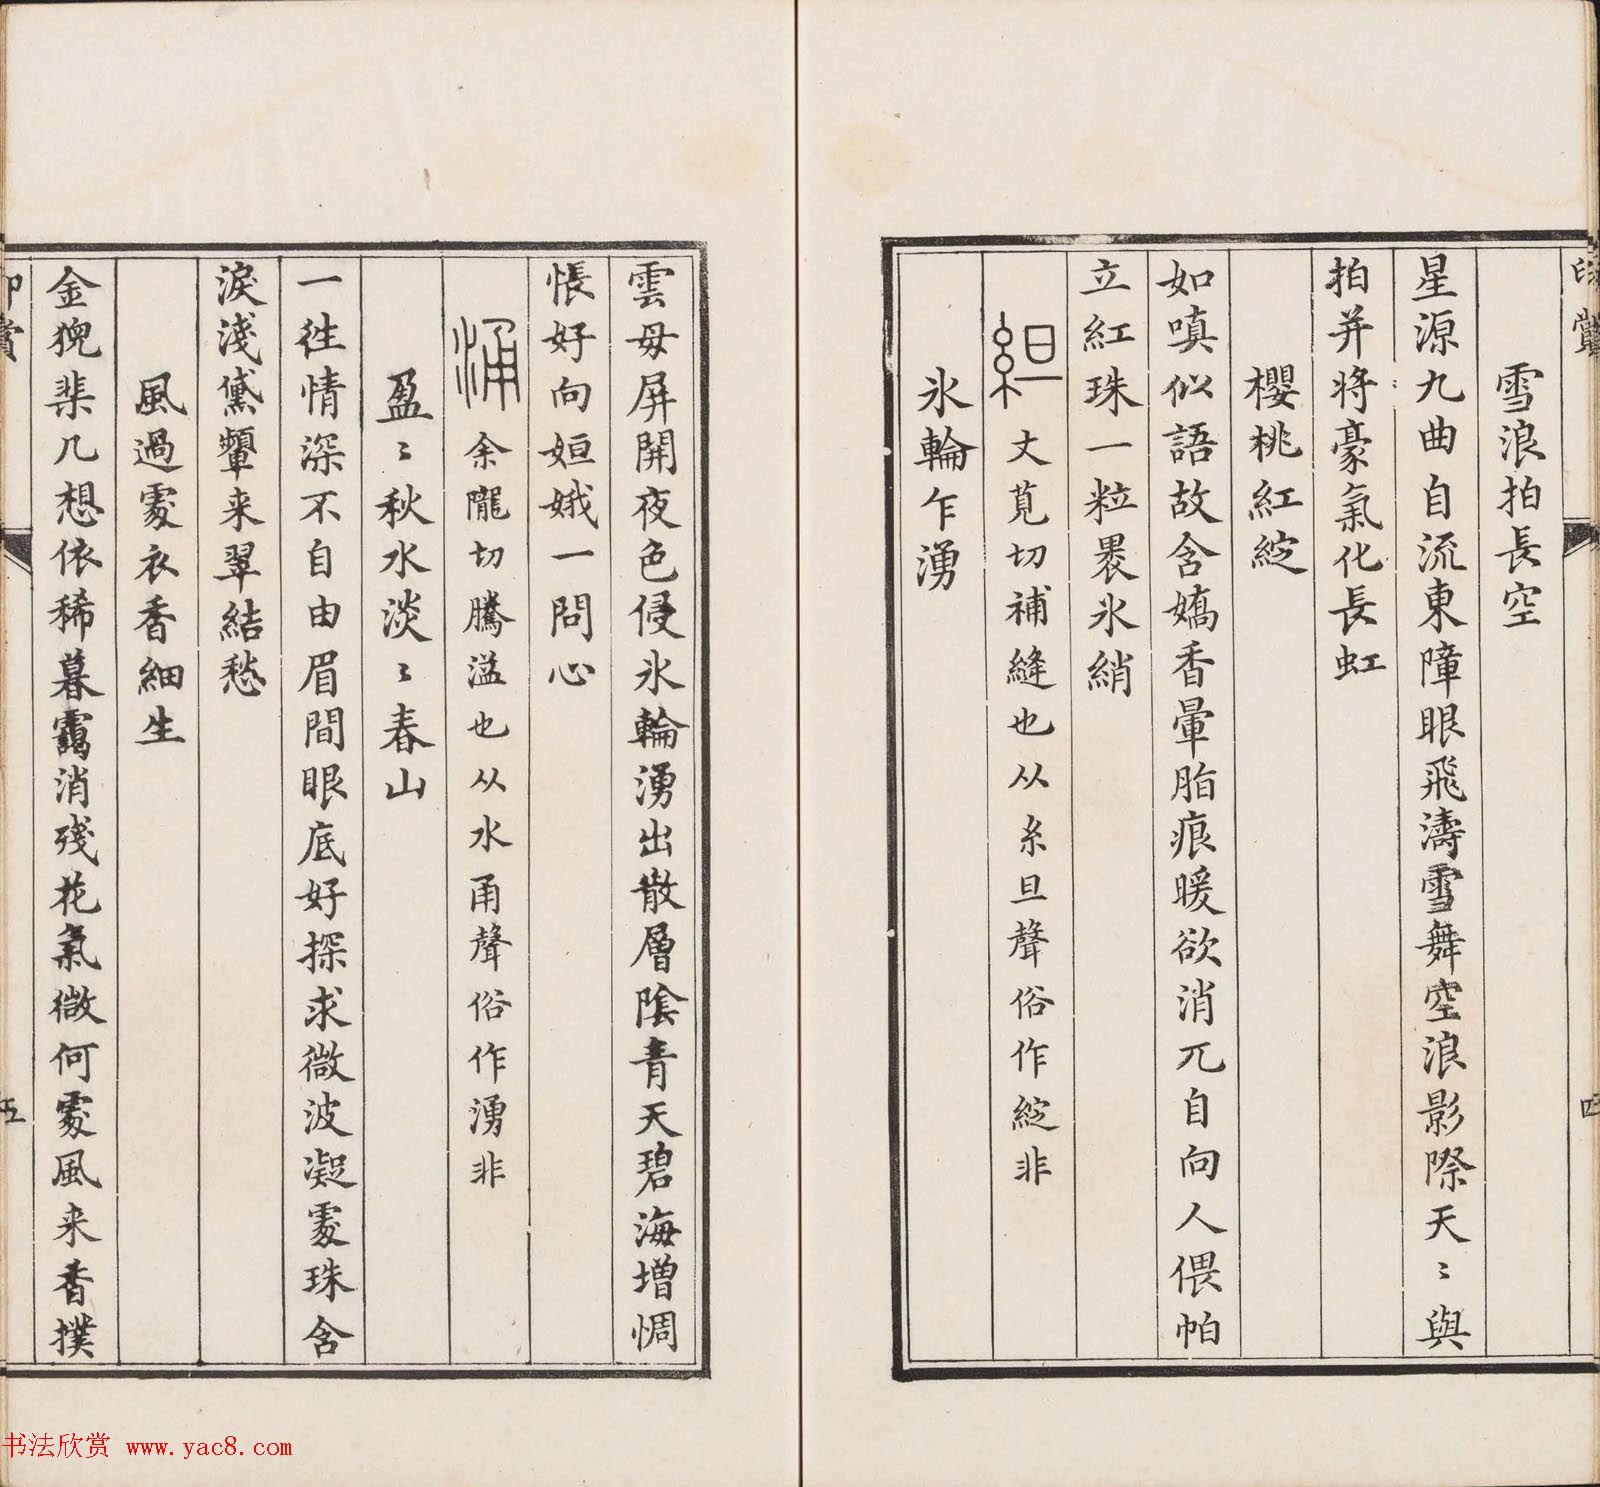 印賞
雪浪拍長空
星源九曲自流東障眼飛濤雪舞空浪影際天〻與
拍并將豪氣化長虹
櫻桃紅綻
如嗔似語故含嬌香暈脂痕暖欲消兀自向人偎帕
立紅珠一粒裹氷綃
組 丈莧切補縫也从糸旦聲俗作綻非
氷輪乍湧
四
雲母屏開夜色侵氷輪湧出散層陰青天碧海增惆
悵好向姮娥一問心
涌 余隴切騰溢也从水甬聲俗作湧非
盈〻秋水淡〻春山
一往情深不自由眉間眼底好探求微波凝處珠含
淚淺黛顰来翠結愁
風過處衣香細生
金猊棐几想依稀暮靄消殘花氣微何處風来香撲
印賞
五
书法欣赏 www.yac8.com